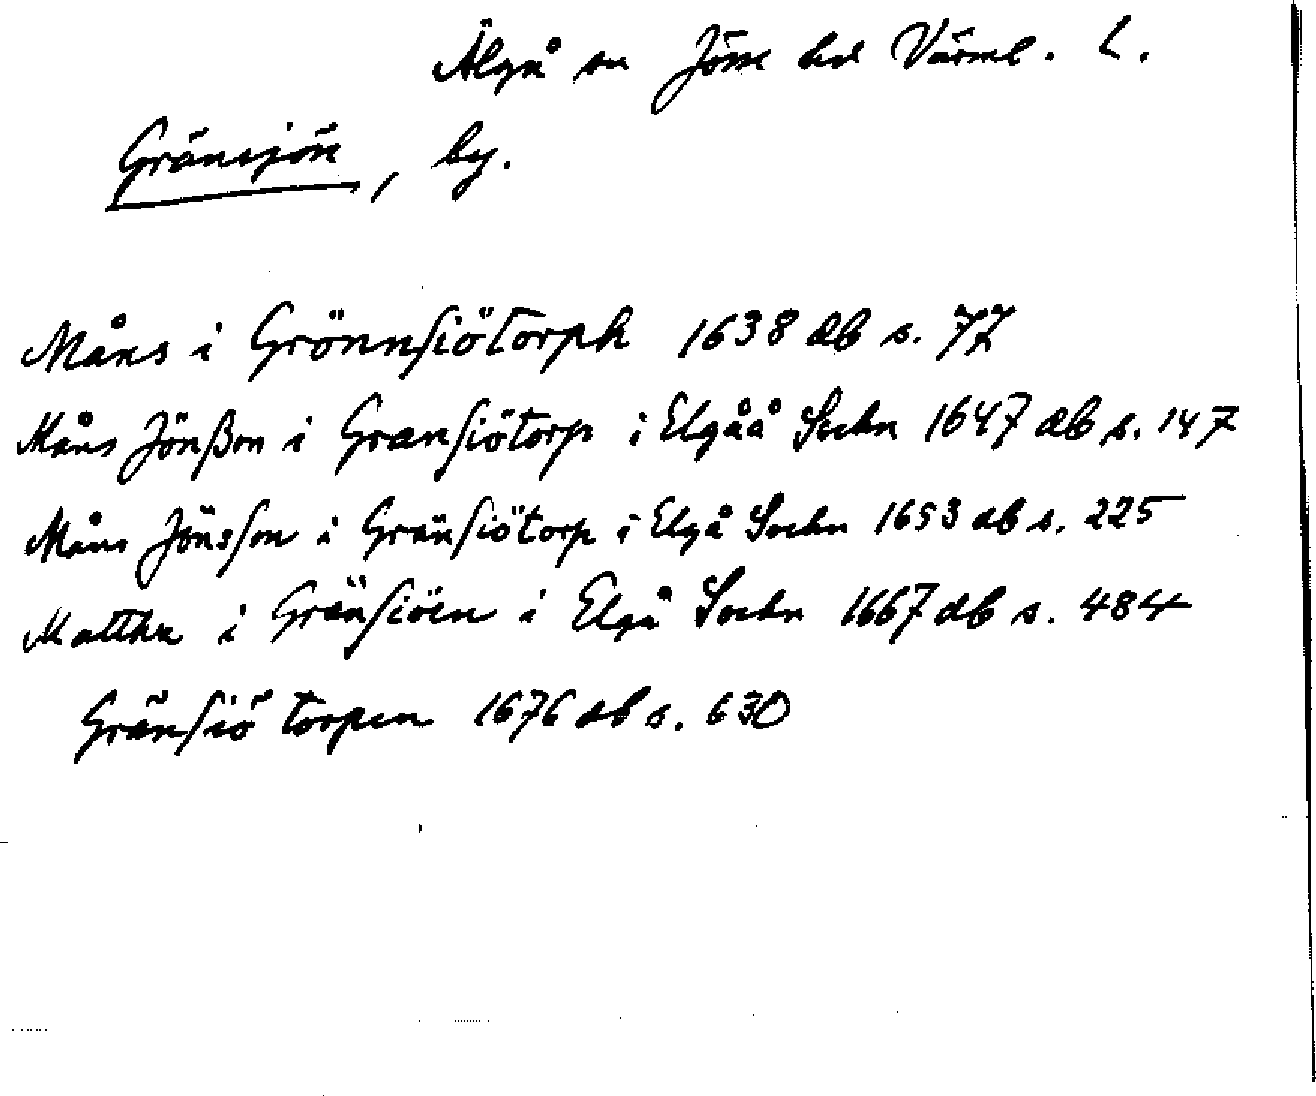 Älgå sn Jösse hd Värml. L.
Gränsjön, by.
Måns i Grönnsiötorph 1638 db s. 77
Måns Jönßon i Grænsiötorp i Elgåå Sochn 1647 db s. 147
Måns Jönsson i Gränsiötorp i Elgå Sochn 1653 db s. 225
Matthes i Gränsiöen i Elgå Sochn 1667 db s. 484
Gränsiö torpen 1676 db s. 630